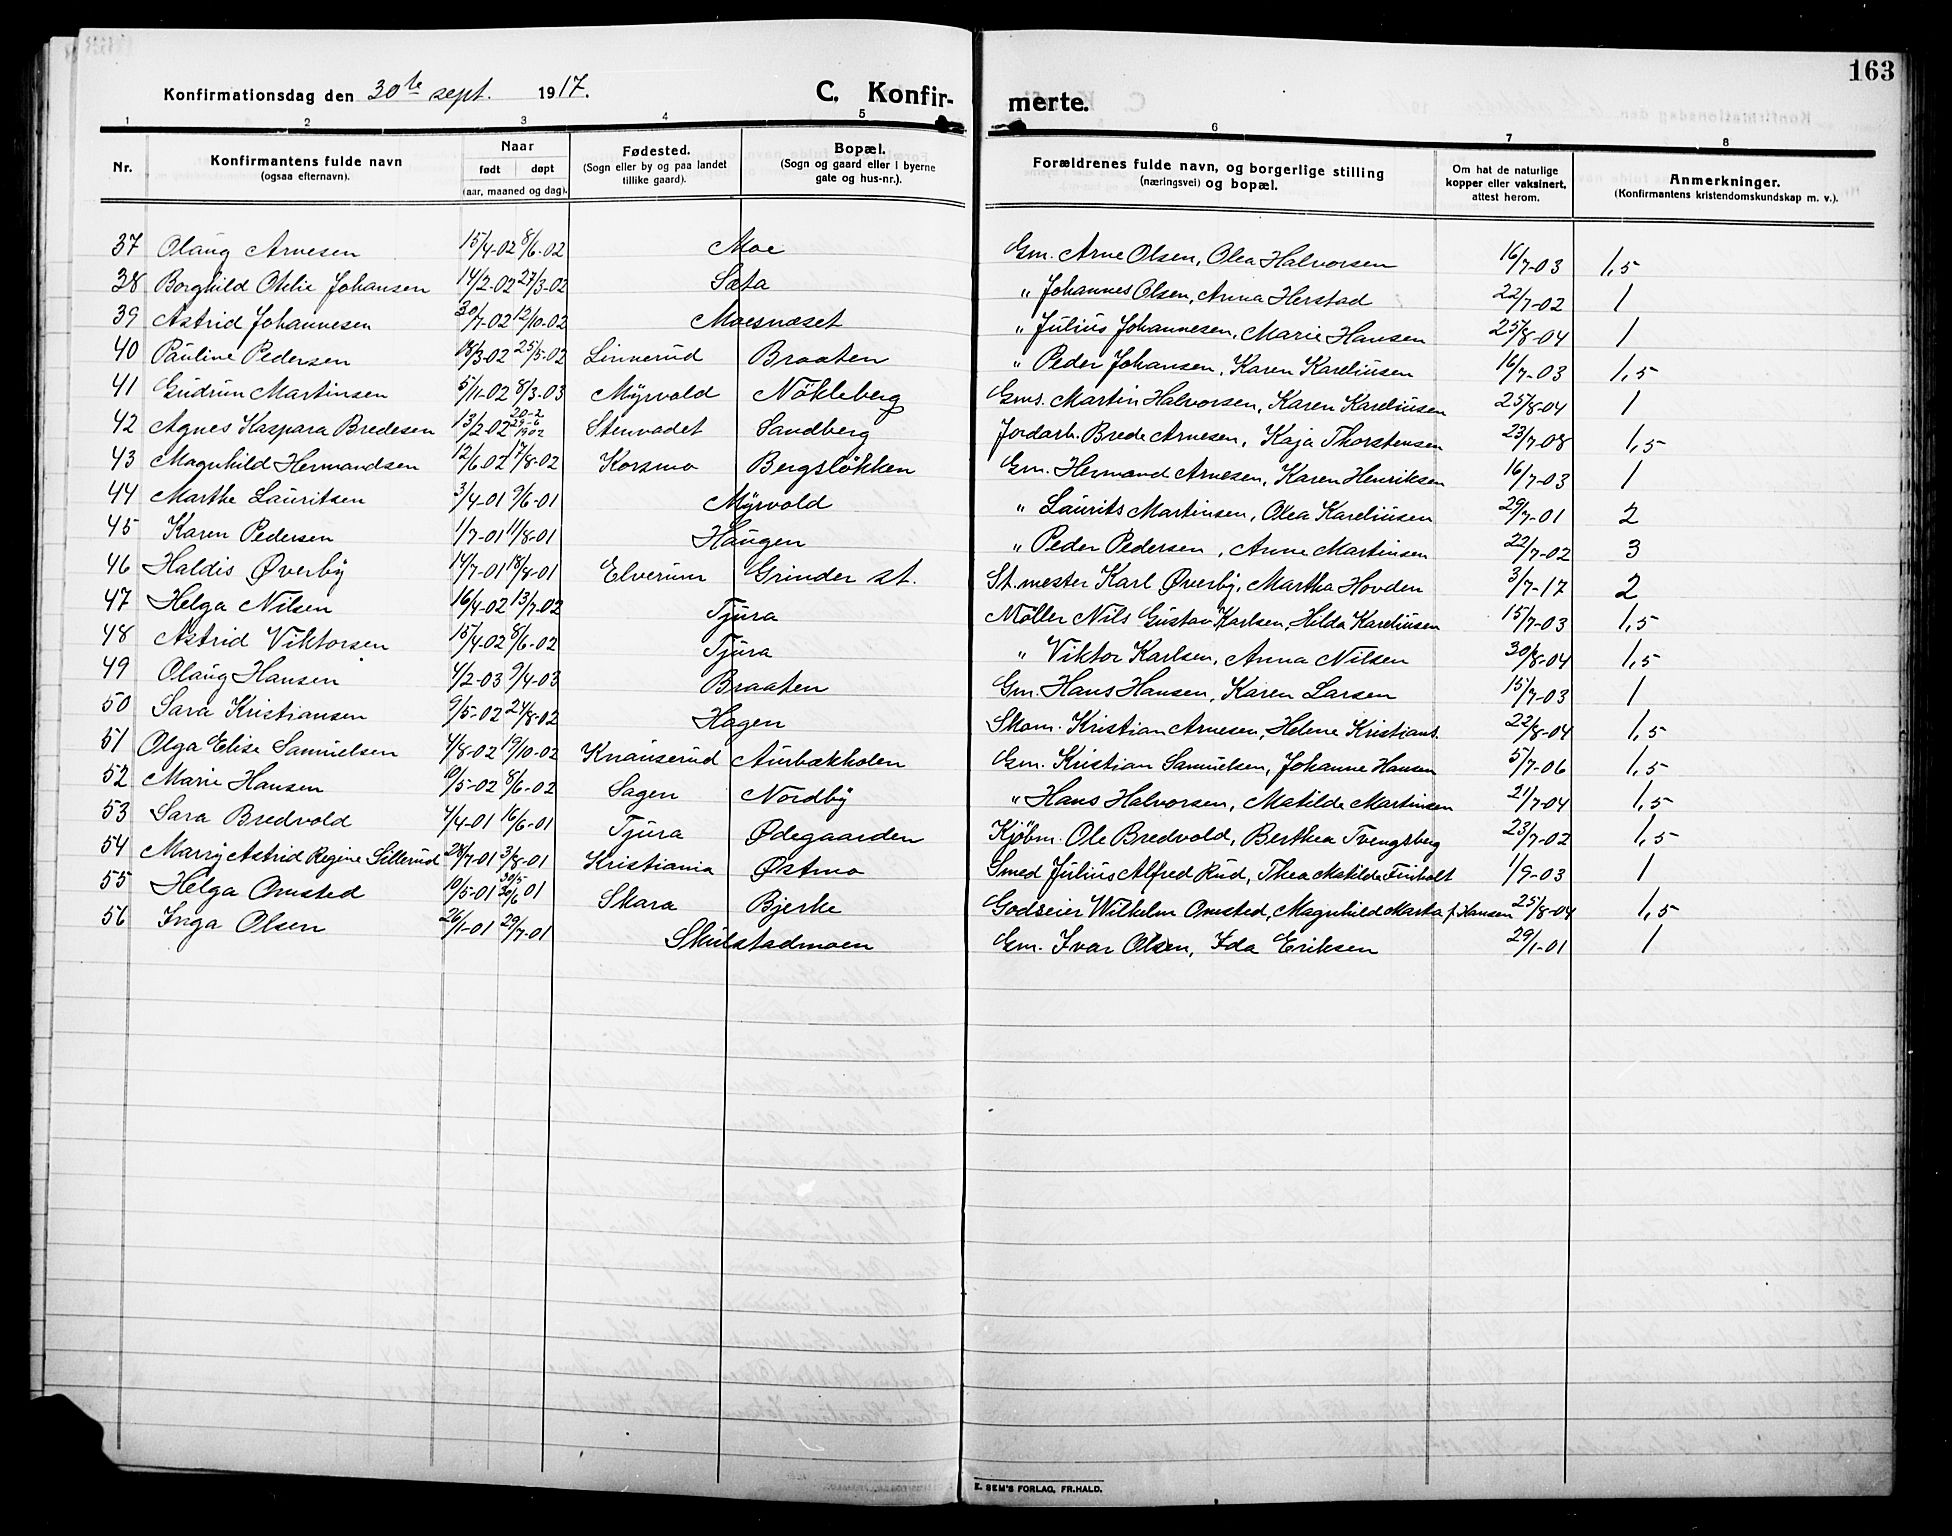 163
Konfirmationsdag den 30te sept. 1917.
C. Konfirmerte.
1 2 3 4 5 6 7 8
Nr. | Konfirmantens fulde navn (ogsaa efternavn). | Naar født døpt (aar, maaned og dag). | Fødested. (Sogn eller by og paa landet tillike gaard). | Bopæl. (Sogn og gaard eller i byerne gate og hus-nr.). | Forældrenes fulde navn, og borgerlige stilling (næringsvei) og bopæl. | Om hat de naturlige kopper eller vaksinert, attest herom. | Anmerkninger. (Konfirmantens kristendomskundskap m. v.).
37 Olaug Arnesen 15/4-02 8/6-02 Moe Gm. Arne Olsen, Olea Halvorsen 16/7-03 1,5
38 Borghild Otelie Johansen 14/2-02 27/3-02 Sæta " Johannes Olsen, Anna Herstad 22/7-02 1
39 Astrid Johannesen 30/7-02 12/10-02 Moesnæset " Julius Johannesen, Marie Hansen 25/8-04 1
40 Pauline Pedersen 18/3-02 25/5-02 Linnerud Braaten " Peder Johansen, Karen Kareliusen 16/7-03 1,5
41 Gudrun Martinsen 5/11-02 8/3-03 Myrvold Nökleberg Gms. Martin Halvorsen, Karen Kareliusen 25/8-04 1
42 Agnes Kaspara Bredesen 13/2-02 20-2 29-6 1902 Stenvadet Sandberg Jordarb. Brede Arnesen, Kaja Thorstensen 23/7-08 1,5
43 Magnhild Hermandsen 12/6 02 17/8-02 Korsmo Bergslökken Gm. Hermand Arnesen, Karen Henriksen 16/7-03 1
44 Marthe Lauritsen 3/4-01 9/6-01 Myrvold " Laurits Martinsen, Olea Kareliusen 29/7-01 2
45 Karen Pedersen 1/7-01 11/8-01 Haugen " Peder Pedersen, Anne Martinsen 22/7-02 3
46 Haldis Øverby 14/7-01 18/8-01 Elverum Grinder st. St. mester Karl Øverby, Martha Hovden 3/7-17 2
47 Helga Nilsen 16/4-02 13/7-02 Tjura Møller Nils Gustav Karlsen, Hilda Kareliusen 15/7-03 1,5
48 Astrid Viktorsen 15/4-02 8/6-02 Tjura " Viktor Karlsen, Anna Nilsen 30/8-04 1,5
49 Olaug Hansen 4/2-03 9/4-03 Braaten Gm. Hans Hansen, Karen Larsen 15/7-03 1
50 Sara Kristiansen 9/5-02 24/8-02 Hagen Skom. Kristian Arnesen, Helene Kristians. 22/8-04 1,5
51 Olga Elise Samuelsen 4/8-02 19/10-02 Knauserud Aurbækholen Gm. Kristian Samuelsen, Johanne Hansen 5/7-06 1,5
52 Marie Hansen 9/5-02 8/6-02 Sagen Nordby " Hans Halvorsen, Matilde Martinsen 21/7-04 1,5
53 Sara Bredvold 4/4-01 16/6-01 Tjura Ødegaarden Kjøbm. Ole Bredvold, Berthea Tvengsberg 23/7-02 1,5
54 Marry Astrid Regine Sillerud 28/7-01 3/8-01 Kristiania Østmo Smed Julius Alfred Rud, Thea Matilde Finholt 1/9-03 1
55 Helga Omsted 19/5-01 30/5 20/6 01 Skara Bjerke Godseier Wilhelm Omsted, Magnhild Marta f. Hansen 25/8-04 1,5
56 Inga Olsen 26/1-01 29/7-01 Skulstadmoen Gm. Ivar Olsen, Ida Eriksen 29/1-01 1
E. SEM'S FORLAG, FR.HALD.